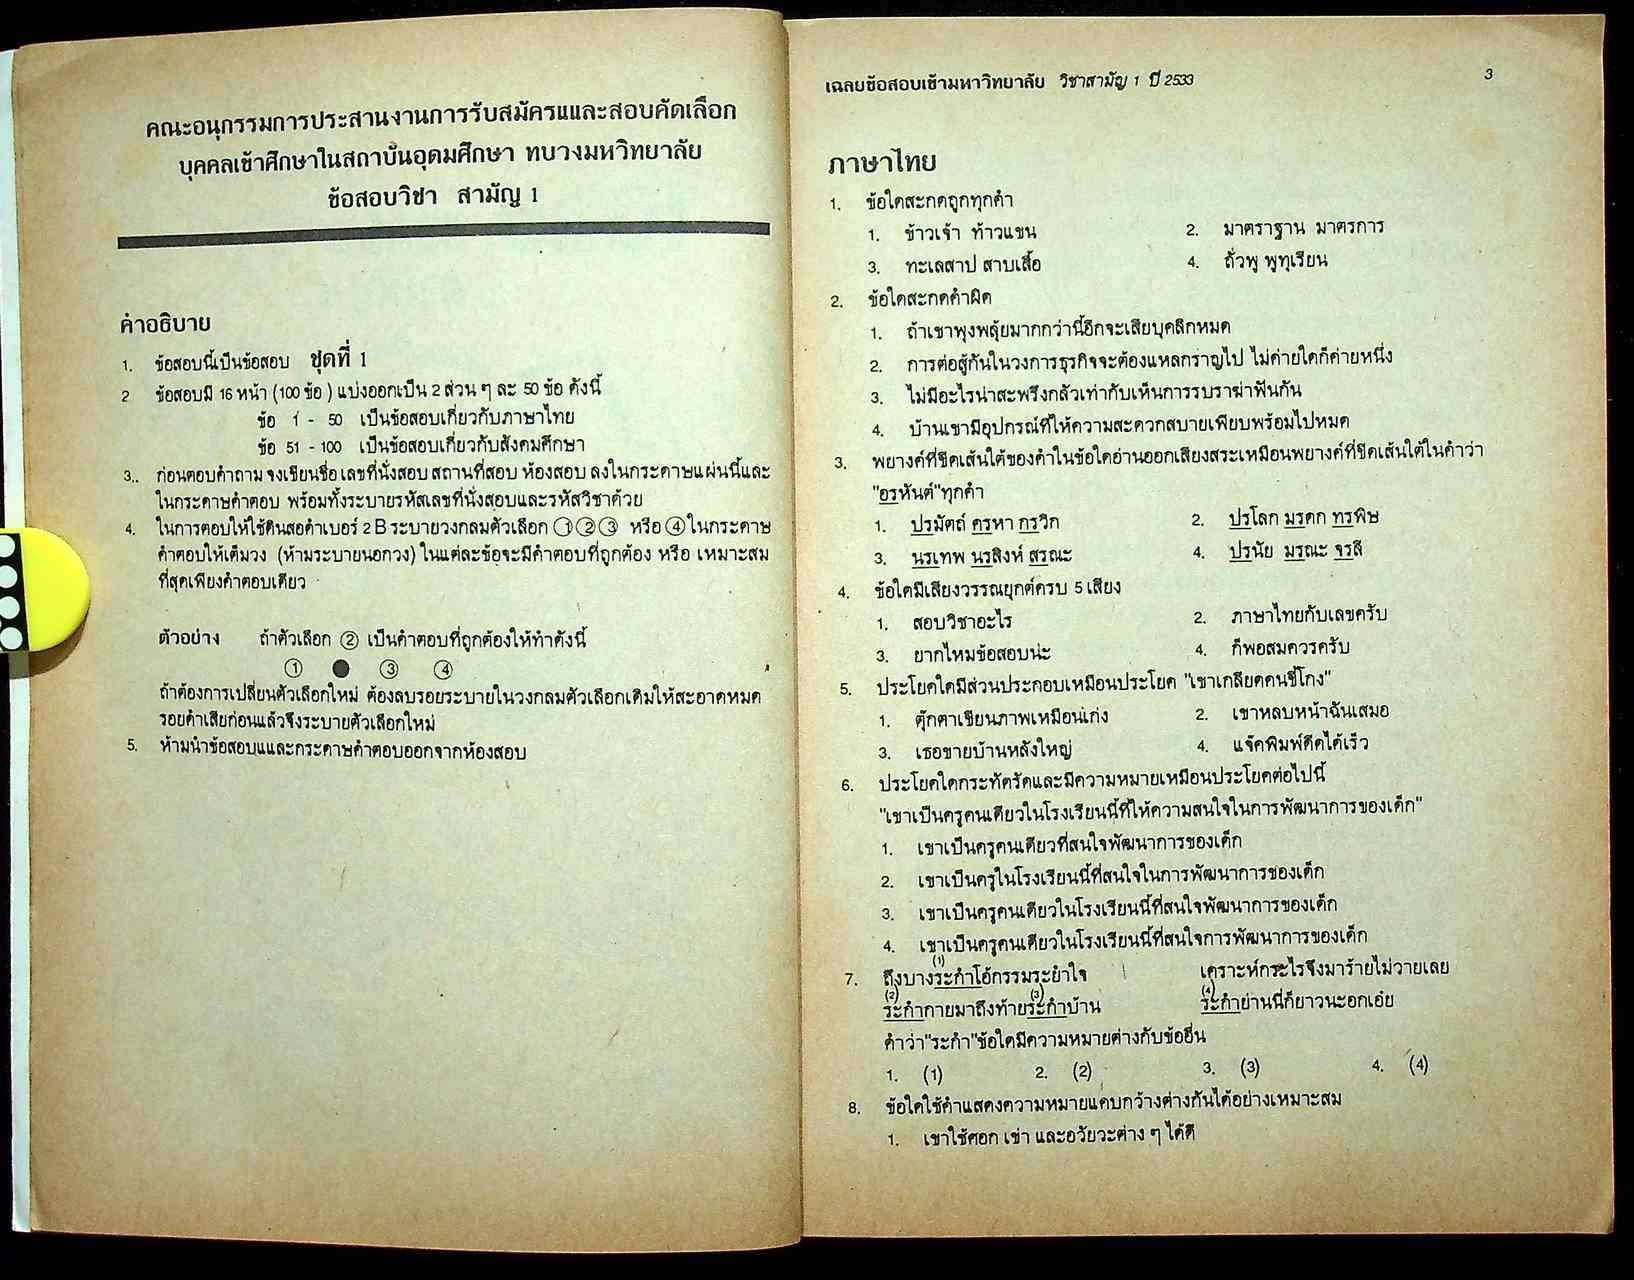 คณะอนุกรรมการประสานงานการรับสมัครแและสอบคัดเลือก
บุคคลเข้าศึกษาในสถาบันอุดมศึกษา ทบวงมหวิทยาลัย
ข้อสอบวิชา สามัญ 1
คำอธิบาย
1. ข้อสอบนี้เป็นข้อสอบ ชุดที่ 1
2 ข้อสอบมี 16 หน้า (100 ข้อ) แบ่งออกเป็น 2 ส่วน ๆ ละ 50 ข้อ ดังนี้
ข้อ 1 - 50 เป็นข้อสอบเกี่ยวกับภาษาไทย
ข้อ 51 - 100 เป็นข้อสอบเกี่ยวกับสังคมศึกษา
3.. ก่อนตอบคำถาม จงเขียนชื่อ เลขที่นั่งสอบ สถานที่สอบ ห้องสอบ ลงในกระดาษแผ่นนี้และ
ในกระดาษคำตอบ พร้อมทั้งระบายรหัสเลขที่นั่งสอบและรหัสวิชาด้วย
4. ในการตอบให้ใช้ดินสอดำเบอร์ 2 B ระบายวงกลมตัวเลือก ① ② ③ หรือ ④ ในกระดาษ
คำตอบให้เต็มวง (ห้ามระบายนอกวง) ในแต่ละข้อจะมีคำตอบที่ถูกต้อง หรือ เหมาะสม
ที่สุดเพียงคำตอบเดียว
ตัวอย่าง ถ้าตัวเลือก ② เป็นคำตอบที่ถูกต้องให้ทำดังนี้
① ● ③ ④
ถ้าต้องการเปลี่ยนตัวเลือกใหม่ ต้องลบรอยระบายในวงกลมตัวเลือกเดิมให้สะอาดหมด
รอยดำเสียก่อนแล้วจึงระบายตัวเลือกใหม่
5. ห้ามนำข้อสอบแและกระดาษคำตอบออกจากห้องสอบ
เฉลยข้อสอบเข้ามหาวิทยาลัย วิชาสามัญ 1 ปี 2533 3
ภาษาไทย
1. ข้อใดสะกดถูกทุกคำ
1. ข้าวเจ้า ท้าวแขน 2. มาตราฐาน มาตรการ
3. ทะเลสาป สาบเสื้อ 4. ถั่วพู พูทุเรียน
2. ข้อใดสะกดคำผิด
1. ถ้าเขาพุงพลุ้ยมากกว่านี้อีกจะเสียบุคลิกหมด
2. การต่อสู้กันในวงการธุรกิจจะต้องแหลกราญไป ไม่ค่ายใดก็ค่ายหนึ่ง
3. ไม่มีอะไรน่าสะพรึงกลัวเท่ากับเห็นการรบราฆ่าฟันกัน
4. บ้านเขามีอุปกรณ์ที่ให้ความสะดวกสบายเพียบพร้อมไปหมด
3. พยางค์ที่ขีดเส้นใต้ของคำในข้อใดอ่านออกเสียงสระเหมือนพยางค์ที่ขีดเส้นใต้ในคำว่า
"อรหันต์"ทุกคำ
1. ปรมัตถ์ ครหา กรวิก 2. ปรโลก มรดก ทรพิษ
3. นรเทพ นรสิงห์ สรณะ 4. ปรนัย มรณะ จรลี
4. ข้อใดมีเสียงวรรณยุกต์ครบ 5 เสียง
1. สอบวิชาอะไร 2. ภาษาไทยกับเลขครับ
3. ยากไหมข้อสอบน่ะ 4. ก็พอสมควรครับ
5. ประโยคใดมีส่วนประกอบเหมือนประโยค "เขาเกลียดคนขี้โกง"
1. ตุ๊กตาเขียนภาพเหมือนเก่ง 2. เขาหลบหน้าฉันเสมอ
3. เธอขายบ้านหลังใหญ่ 4. แจ๊คพิมพ์ดีดได้เร็ว
6. ประโยคใดกระทัดรัดและมีความหมายเหมือนประโยคต่อไปนี้
"เขาเป็นครูคนเดียวในโรงเรียนนี้ที่ให้ความสนใจในการพัฒนาการของเด็ก"
1. เขาเป็นครูคนเดียวที่สนใจพัฒนาการของเด็ก
2. เขาเป็นครูในโรงเรียนนี้ที่สนใจในการพัฒนาการของเด็ก
3. เขาเป็นครูคนเดียวในโรงเรียนนี้ที่สนใจพัฒนาการของเด็ก
4. เขาเป็นครูคนเดียวในโรงเรียนนี้ที่สนใจการพัฒนาการของเด็ก
(1)
7. ถึงบางระกำโอ้กรรมระยำใจ เคราะห์กระไรจึงมาร้ายไม่วายเลย
(2) (3) (4)
ระกำกายมาถึงท้ายระกำบ้าน ระกำย่านนี้ก็ยาวนะอกเอ๋ย
คำว่า"ระกำ"ข้อใดมีความหมายต่างกับข้ออื่น
1. (1) 2. (2) 3. (3) 4. (4)
8. ข้อใดใช้คำแสดงความหมายแคบกว้างต่างกันได้อย่างเหมาะสม
1. เขาใช้ศอก เข่า และอวัยวะต่าง ๆ ได้ดี